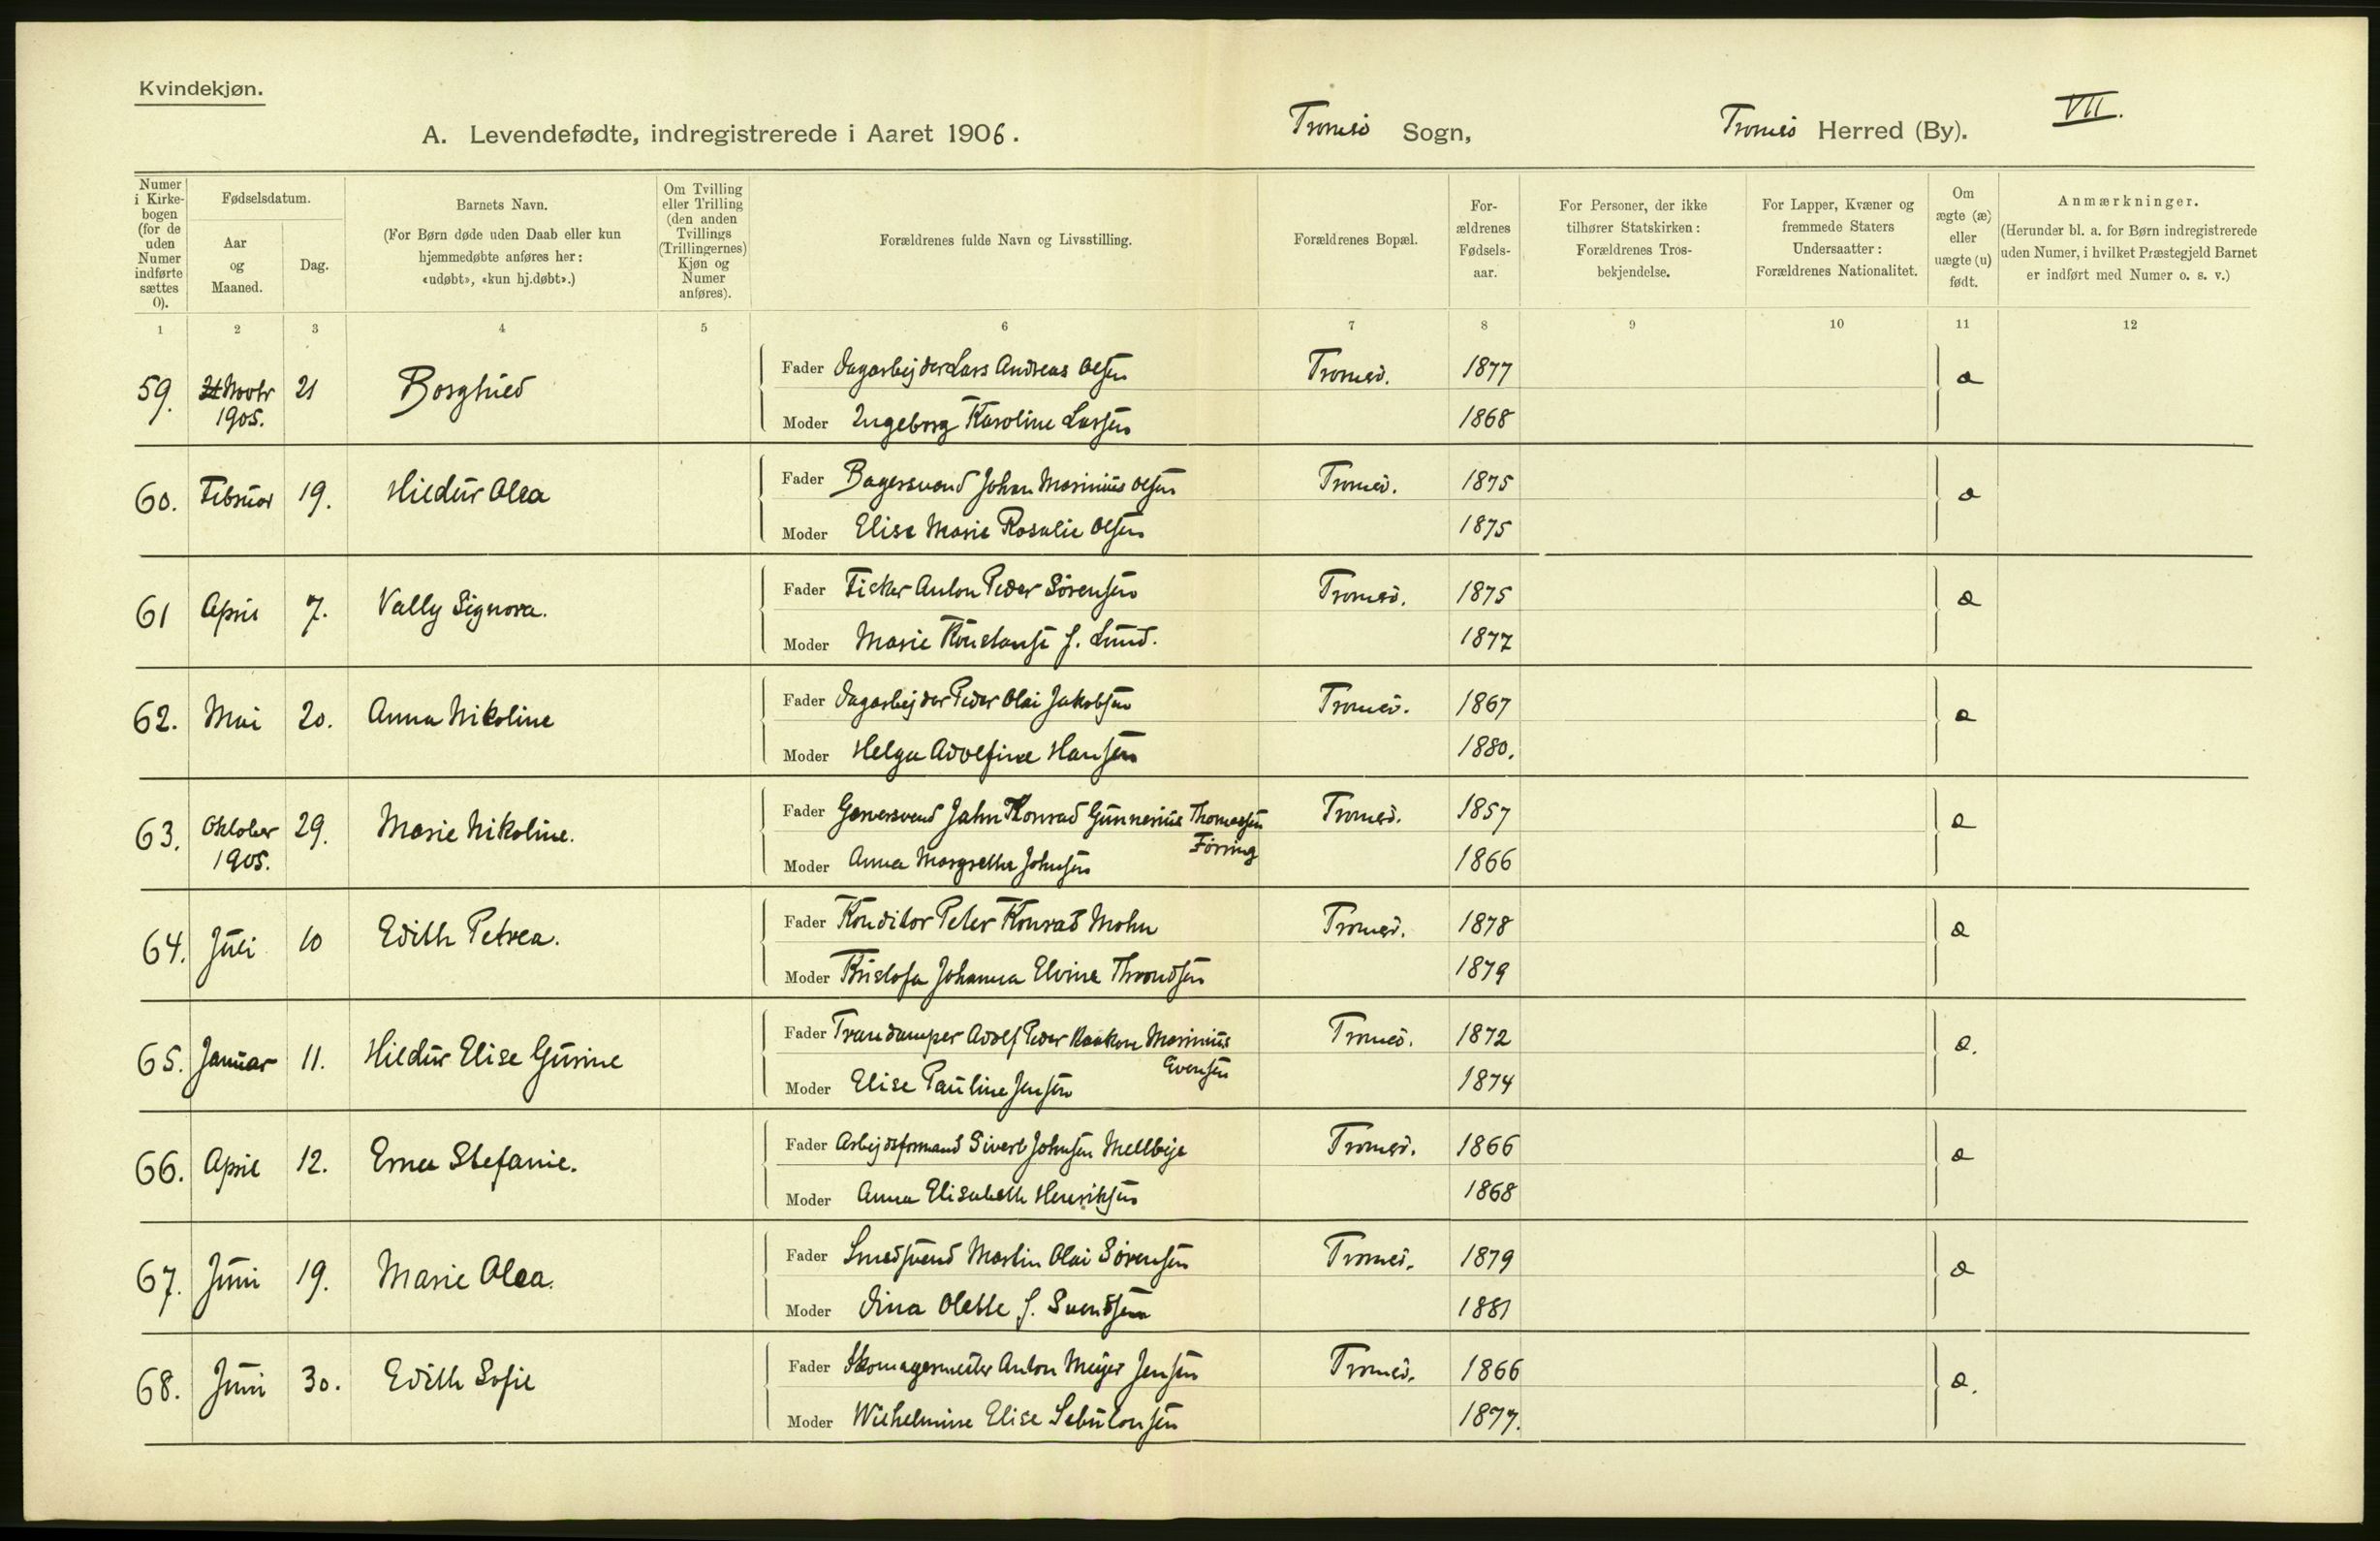 Kvindekjøn.
VII.
A. Levendefødte, indregistrerede i Aaret 1906. Tromsø Sogn, Tromsø Herred (By).
Numer i Kirkebogen (for de uden Numer indførte sættes 0).
Fødselsdatum.
Aar og Maaned.
Dag.
Barnets Navn.
(For Børn døde uden Daab eller kun
hjemmedøbte anføres her:
«udøbt», «kun hj.døbt».)
Om Tvilling
eller Trilling
(den anden
Tvillings
(Trillingernes)
Kjøn og
Numer
anføres).
Forældrenes fulde Navn og Livsstilling.
Forældrenes Bopæl.
For-
ældrenes
Fødsels-
aar.
For Personer, der ikke
tilhører Statskirken:
Forældrenes Tros-
bekjendelse.
For Lapper, Kvæner og
fremmede Staters
Undersaatter:
Forældrenes Nationalitet.
Om
ægte (æ)
eller
uægte (u)
født.
Anmærkninger.
(Herunder bl. a. for Børn indregistrerede
uden Numer, i hvilket Præstegjeld Barnet
er indført med Numer o. s. v.)
1 2 3 4 5 6 7 8 9 10 11 12
59. Novbr 21 Borghild Fader Dagarbejder Lars Andreas Olsen Tromsø. 1877 æ
1905. Moder Ingeborg Karoline Larsen 1868
60. Februar 19. Hildur Olea Fader Bagersvend Johan Marinius Olsen Tromsø. 1875 æ
Moder Elise Marie Rosalie Olsen 1875
61 April 7. Vally Signora. Fader Fisker Anton Peder Sørensen Tromsø. 1875 æ
Moder Marie Konstanse f. Lund. 1877
62. Mai 20. Anna Nikoline Fader Dagarbejder Peder Olai Jakobsen Tromsø. 1867 æ
Moder Helga Adolfine Hansen 1880.
63. Oktober 29. Marie Nikoline. Fader Garversvend Jahn Konrad Gunnerius Thomassen Tromsø. 1857 æ
Förring
1905. Moder Anna Margrethe Johnsen 1866
64. Juli 10 Edith Petrea. Fader Konditor Peter Konrad Mohn Tromsø. 1878 æ
Moder Kristofa Johanna Elvine Throndsen 1879
65. Januar 11. Hildur Elise Gurine Fader Trandamper Adolf Peder Haakon Marinius Tromsø. 1872 æ.
Evensen
Moder Elise Pauline Jensen 1874
66. April 12. Erna Stefanie. Fader Arbejdsformand Sivert Johnsen Mellbye Tromsø. 1866 æ
Moder Anna Elisabeth Henriksen 1868
67. Juni 19. Marie Olea. Fader Smedsvend Martin Olai Sörensen Tromsø. 1879 æ
Moder Dina Olette f. Svendsen 1881
68. Juni 30. Edith Sofie Fader Skomagermester Anton Meyer Jensen Tromsø. 1866 æ.
Moder Wilhelmine Elise Sebulonsen 1877.